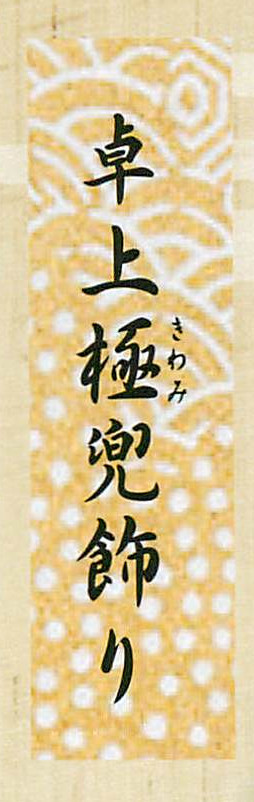 卓上極兜飾り
きわみ